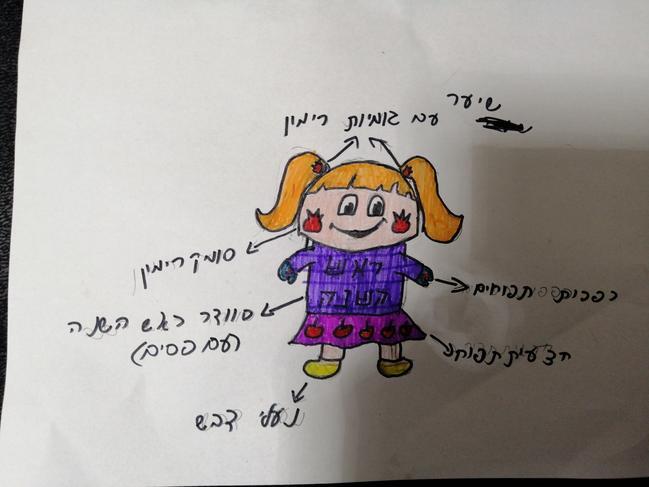 שיער
עם גומיות רימון
סומק רימון
ראש
השנה
כפפות תפוחים
סוודר ראש השנה
(עם פסים)
חצאית תפוח
נעלי דבש